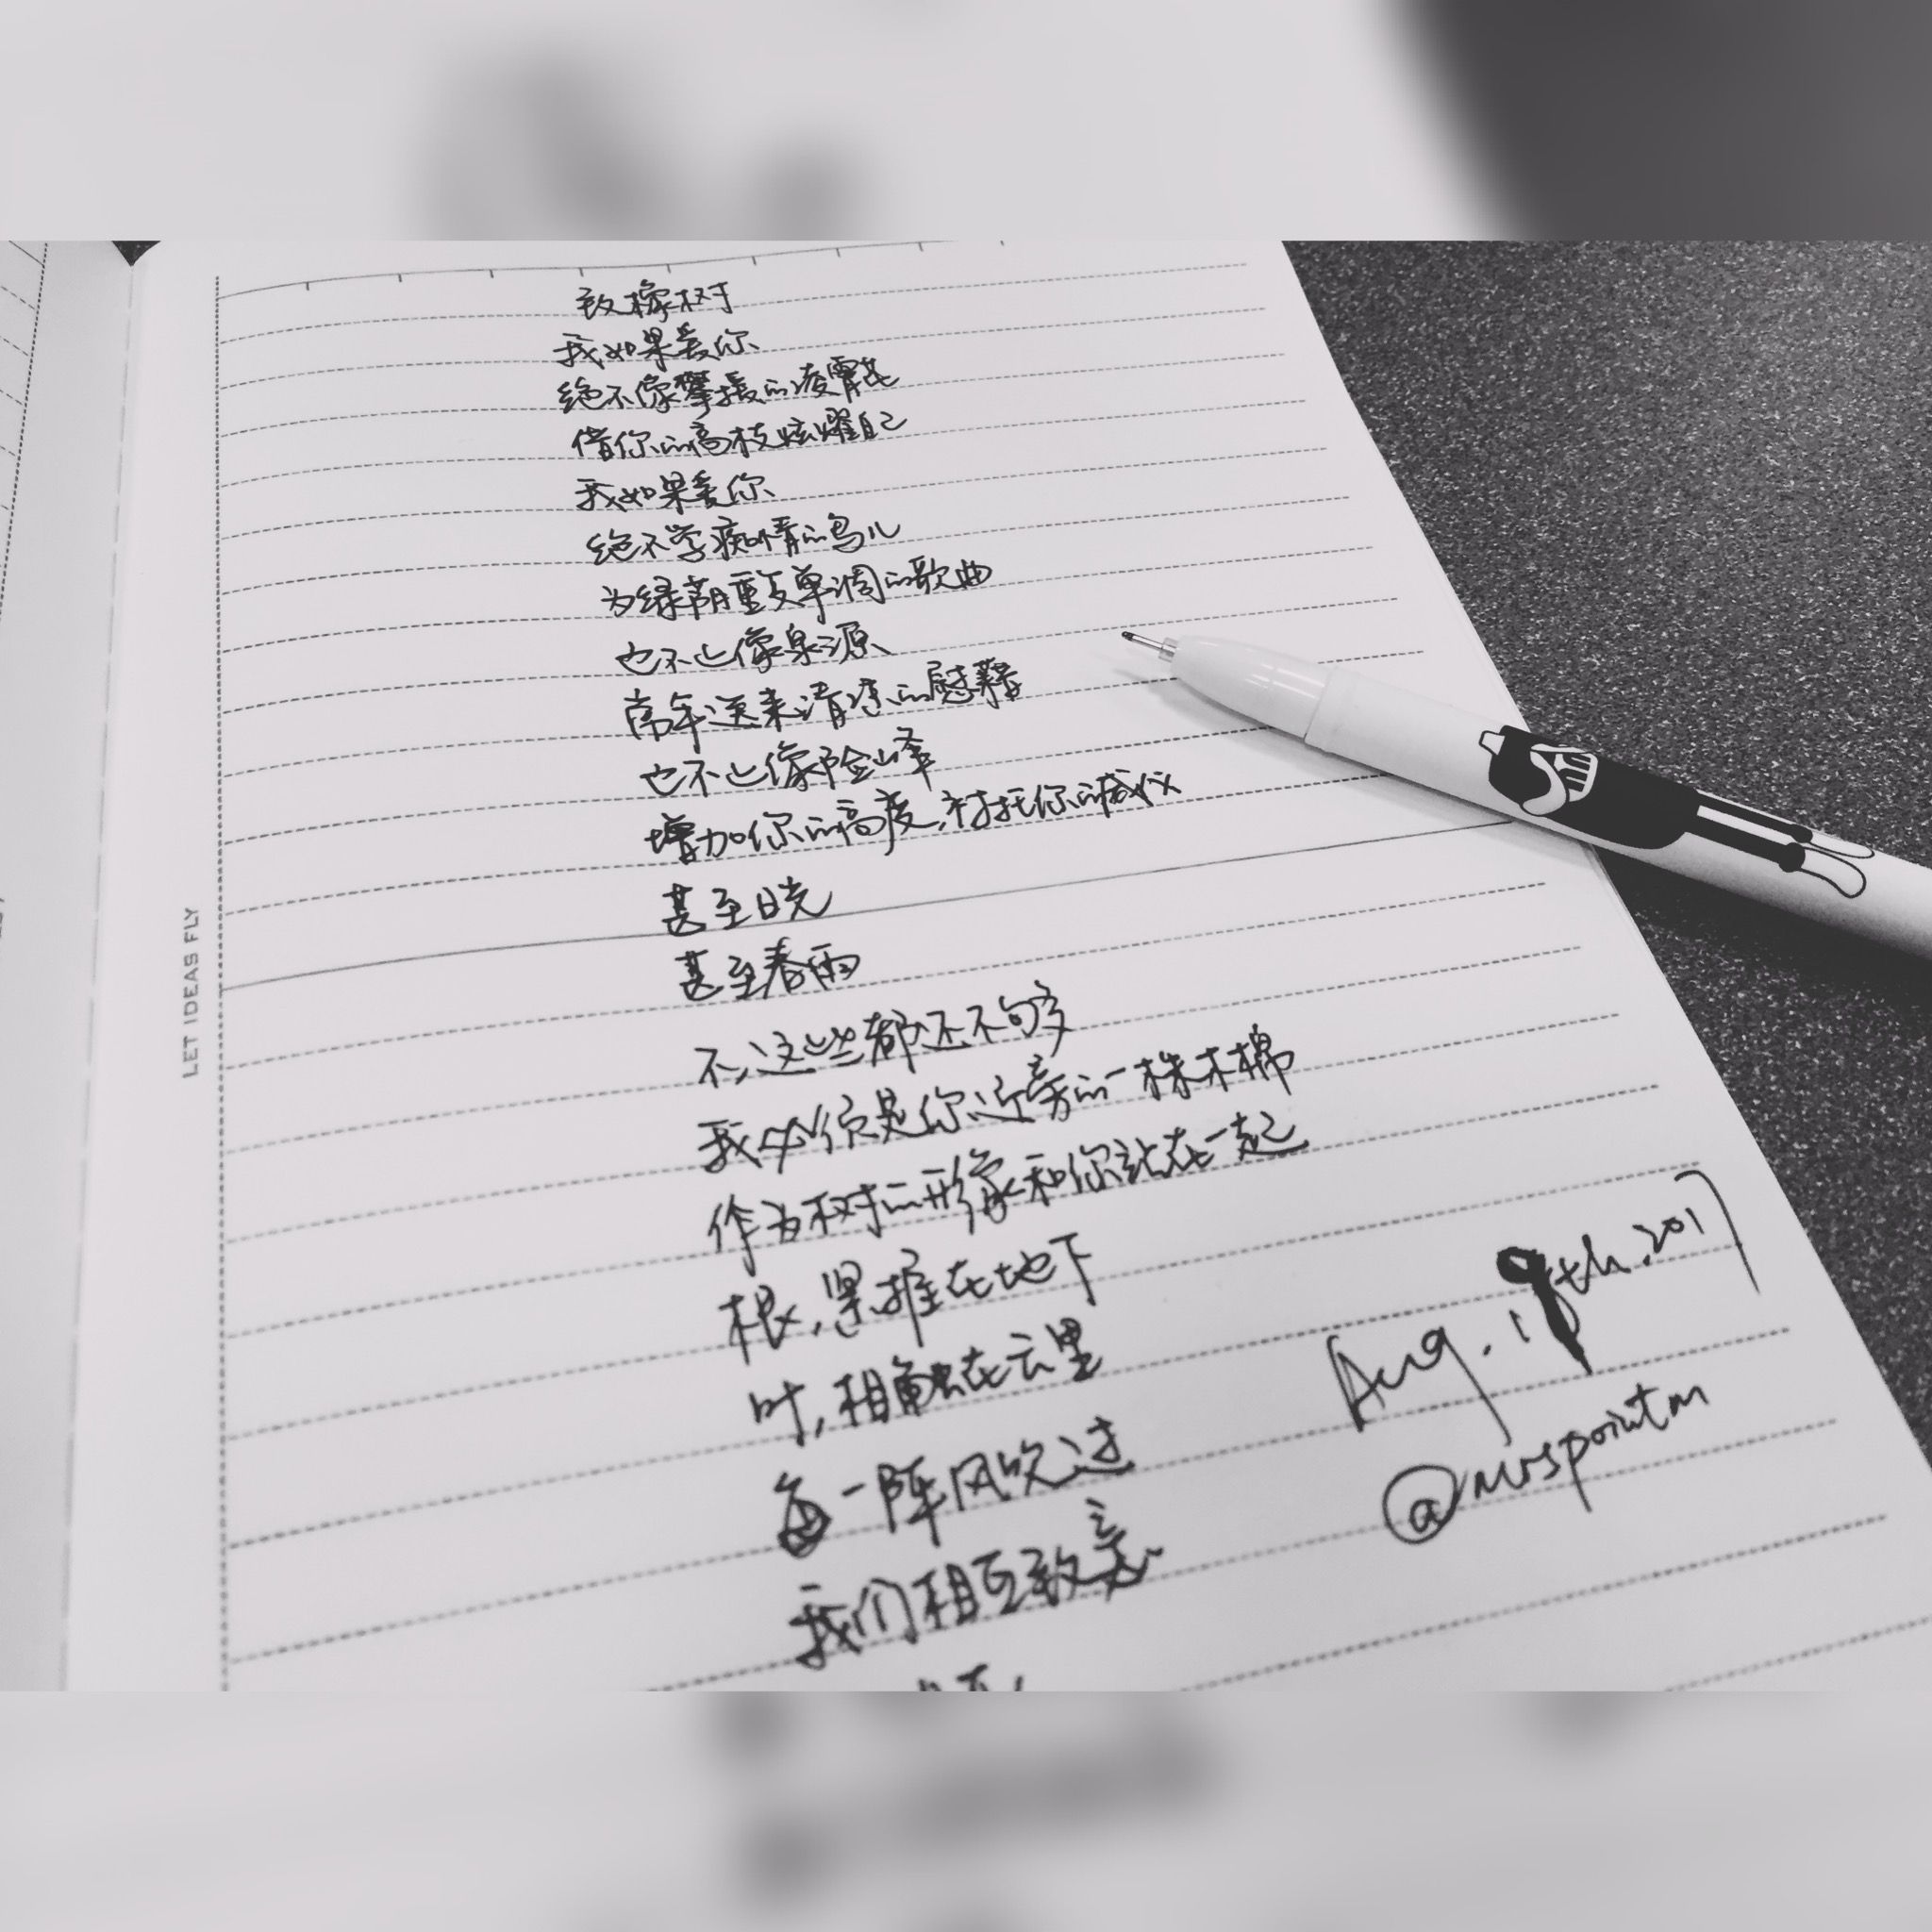 致橡树
我如果爱你
绝不像攀援的凌霄花
借你的高枝炫耀自己
我如果爱你
绝不学痴情的鸟儿
为绿荫重复单调的歌曲
也不止像泉源
常年送来清凉的慰藉
也不止像险峰
增加你的高度,衬托你的威仪
甚至日光
甚至春雨
不,这些都还不够
我必须是你近旁的一株木棉
作为树的形象和你站在一起
根,紧握在地下
叶,相触在云里
每一阵风吹过
我们相互致意
Aug. 19th. 2017
LET IDEAS FLY